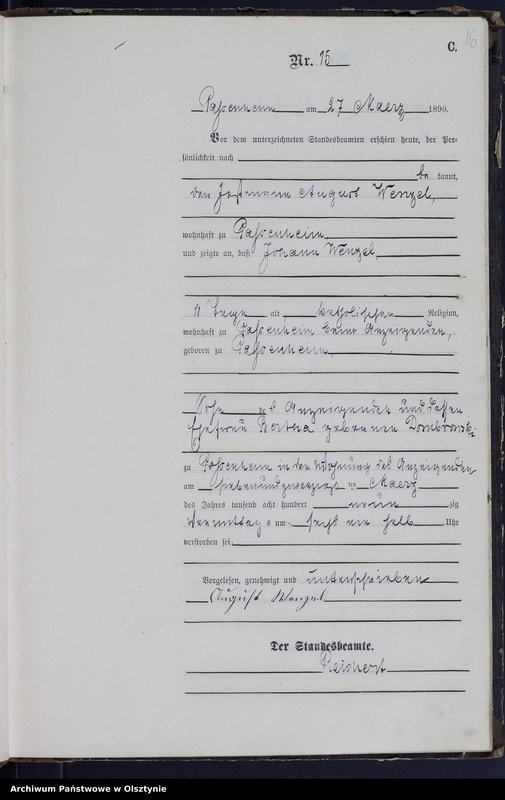 C.
16
Nr. 15
Passenheim am 27 Maerz 1890.
Vor dem unterzeichneten Standesbeamten erschien heute, der Per-
sönlichkeit nach
be kannt,
den August Wenzel,
wohnhaft zu Passenheim
und zeigte an, daß Johann Wenzel,
11 Tage alt, katholischer Religion,
wohnhaft zu Passenheim beim Anzeigenden,
geboren zu Passenheim,
Sohn des Anzeigenden und dessen
Ehefrau Bertha geborenen Dombrowski
zu Passenheim in der Wohnung des Anzeigenden
am siebenundzwanzigsten Maerz
des Jahres tausend acht hundert neun zig
Vormittags um sechs ein halb Uhr
verstorben sei.
Vorgelesen, genehmigt und unterschrieben
August Wenzel
Der Standesbeamte.
Reichert
Archiwum Państwowe w Olsztynie